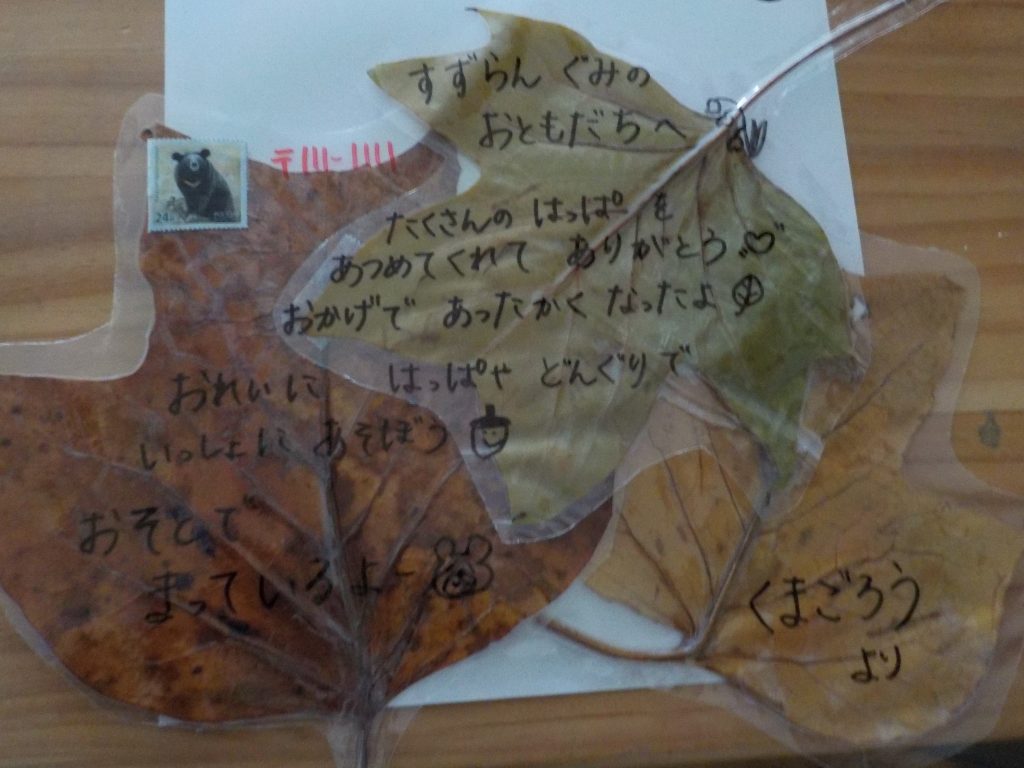 すずらん ぐみの
おともだちへ
〒111-1111
たくさんの はっぱーを
あつめてくれて ありがとう
おかげで あったかく なったよ
おれいに はっぱや どんぐりで
いっしょに あそぼう
おそとで
まっているよー
くまごろう
より